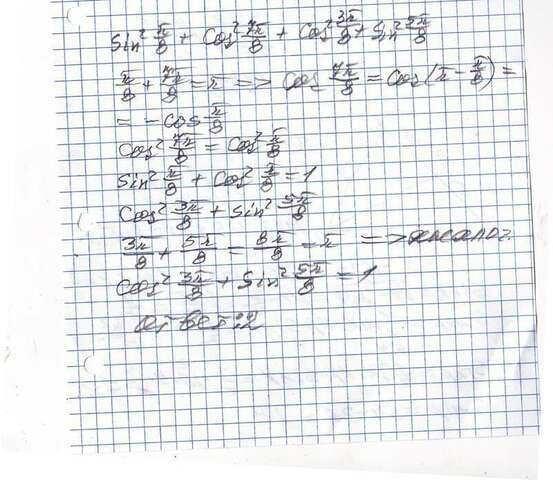 Sin² π/8 + Cos² 7π/8 + Cos² 3π/8 + Sin² 5π/8
π/8 + 7π/8 = π => Cos 7π/8 = Cos(π - π/8) =
= - cos π/8
Cos² 7π/8 = Cos² π/8
Sin² π/8 + Cos² π/8 = 1
Cos² 3π/8 + Sin² 5π/8
3π/8 + 5π/8 = 8π/8 = π => аналог.
Cos² 3π/8 + Sin² 5π/8 = 1
ответ: 2